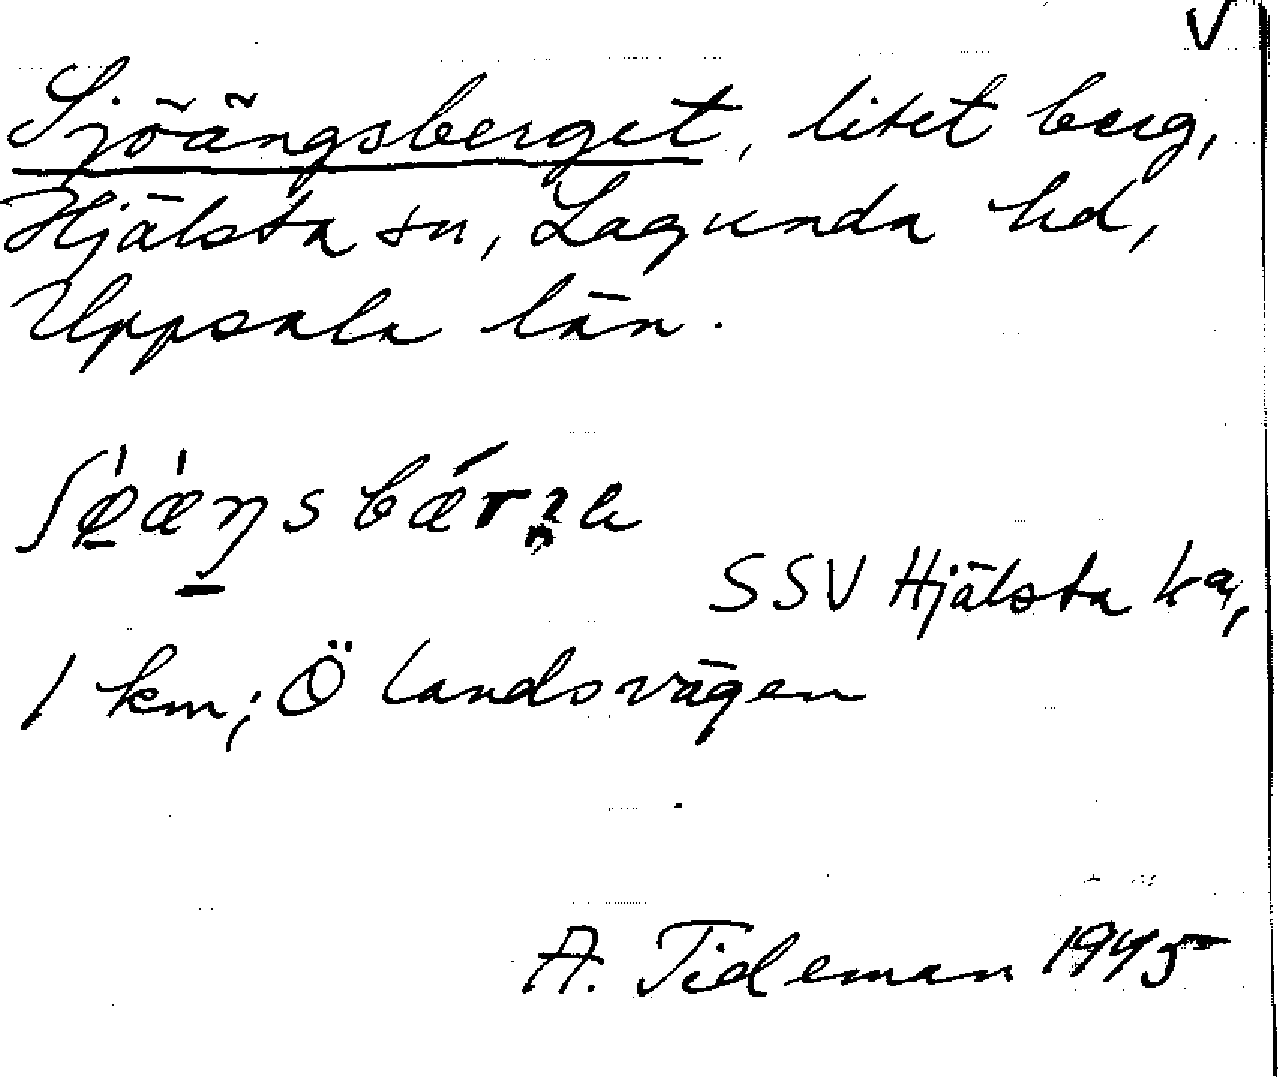 V
Sjöängsberget, litet berg,
Hjälsta sn, Lagunda hd,
Uppsala län.
SSV Hjälsta ka,
1 km; Ö landsvägen
A. Tideman 1945